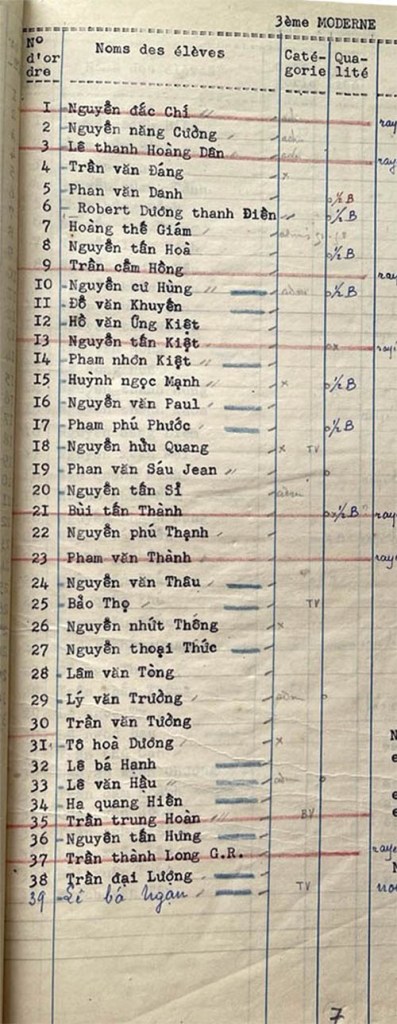 3ème MODERNE
N° d'or dre Noms des élèves Caté- gorie Qua- lité
1 Nguyễn đắc Chí
2 Nguyễn năng Cường
3 Lê thanh Hoàng Dân
4 Trần văn Đáng x
5 Phan văn Danh ½ B
6 Robert Dương thanh Điền ½ B
7 Hoàng thế Giám
8 Nguyễn tấn Hoà ½ B
9 Trần cẩm Hồng
10 Nguyễn cư Hùng ½ B
11 Đỗ văn Khuyến
12 Hồ văn Ứng Kiệt
13 Nguyễn tấn Kiệt
14 Phạm nhơn Kiệt
15 Huỳnh ngọc Mạnh x ½ B
16 Nguyễn văn Paul
17 Phạm phú Phước ½ B
18 Nguyễn hữu Quang x TV
19 Phan văn Sáu Jean
20 Nguyễn tấn Sĩ
21 Bùi tấn Thành ½ B
22 Nguyễn phú Thạnh
23 Phạm văn Thành
24 Nguyễn văn Thâu
25 Bảo Thọ TV
26 Nguyễn nhứt Thống x
27 Nguyễn thoại Thức
28 Lâm văn Tòng
29 Lý văn Trường
30 Trần văn Tường
31 Tô hoà Dương x
32 Lê bá Hạnh
33 Lê văn Hậu
34 Hạ quang Hiển
35 Trần trung Hoàn BV
36 Nguyễn tấn Hưng
37 Trần thành Long G.R.
38 Trần đại Lượng TV
39 Lê bá Ngạn
7